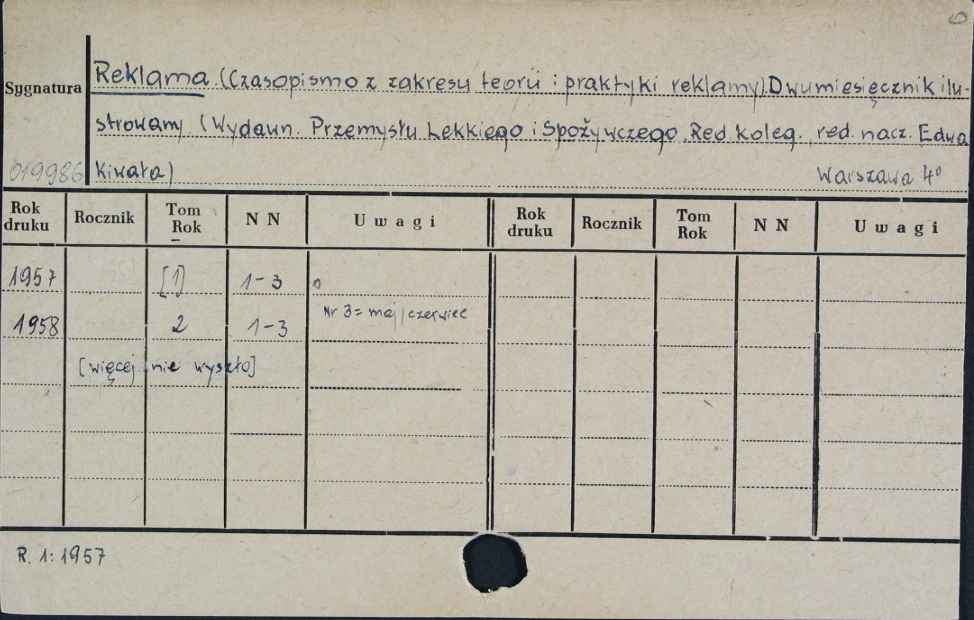 Sygnatura
Reklama (Czasopismo z zakresu teorii i praktyki reklamy) Dwumiesięcznik ilu-
strowany (Wydawn. Przemysłu Lekkiego i Spożywczego. Red. koleg., red. nacz. Edwa
019986 Kiwała)
Warszawa 4°
Rok druku Rocznik Tom Rok N N Uwagi Rok druku Rocznik Tom Rok N N Uwagi
1957 [1] 1-3
1958 2 1-3 Nr 3 = maj/czerwiec
[więcej nie wyszło]
R. 1: 1957